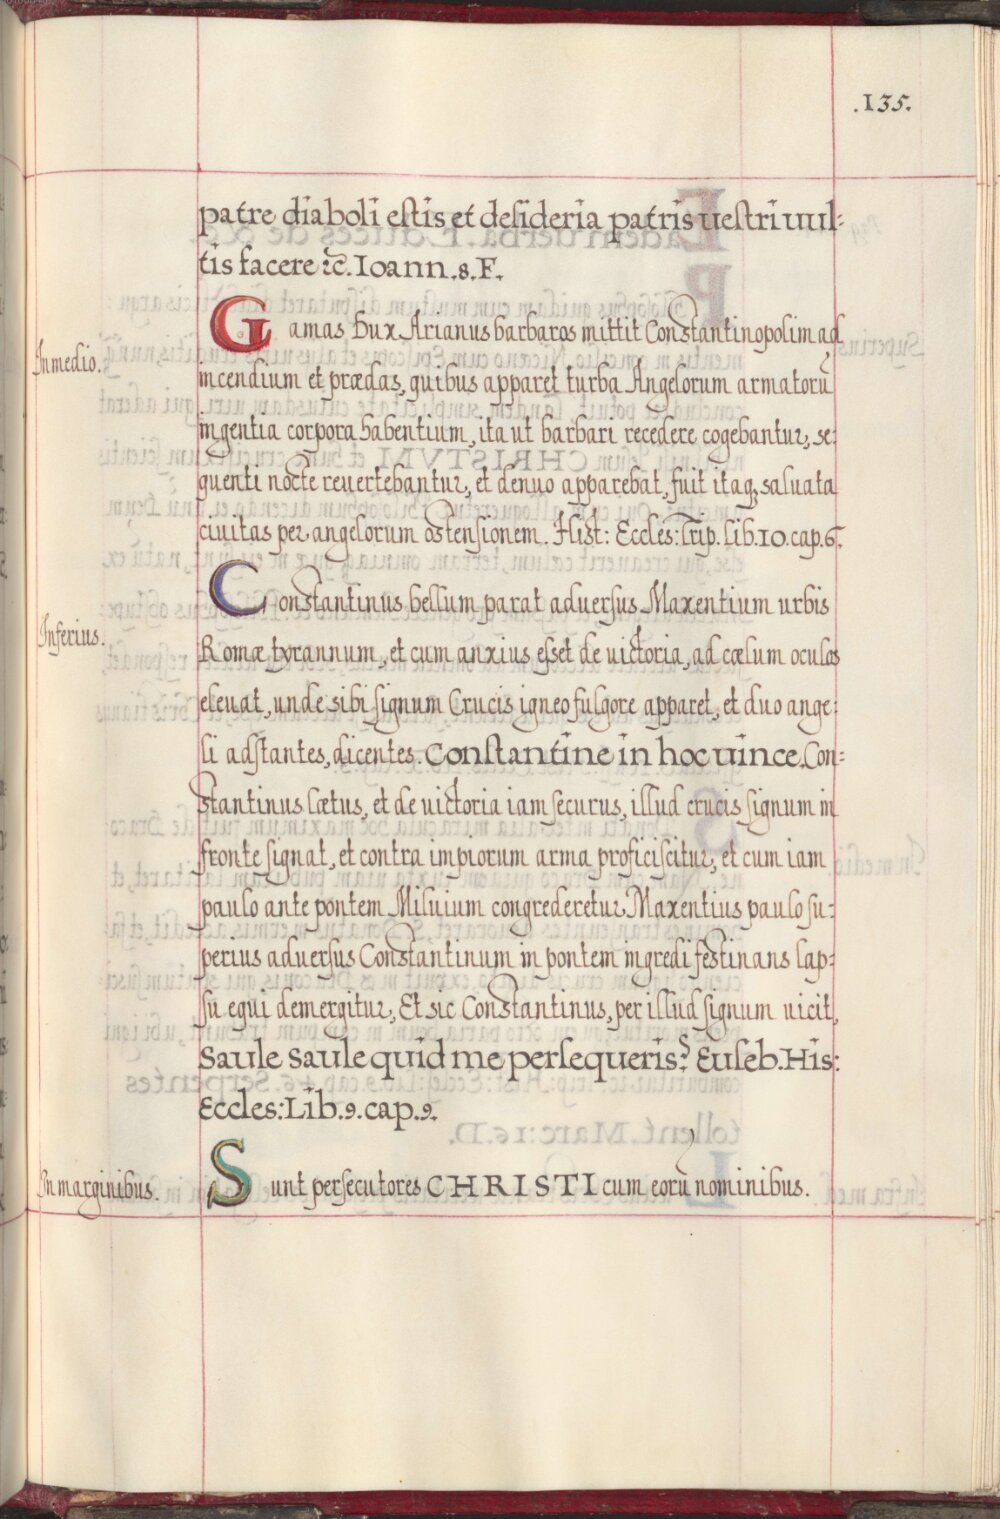 .135.
patre diaboli estis et desideria patris uestri uul=
tis facere &c. Ioann. 8. F.
In medio.
Gamas Dux Arianus barbaros mittit Constantinopolim ad
incendium et prædas, quibus apparet turba Angelorum armatorũ
ingentia corpora habentium, ita ut barbari recedere cogebantur, se=
quenti nocte reuertebantur, et denuo apparebat, fuit itaq; saluata
ciuitas per angelorum ostensionem. Hist: Eccles: Trip. Lib. 10. cap. 6.
Inferius.
Constantinus bellum parat aduersus Maxentium urbis
Romæ tyrannum, et cum anxius esset de uictoria, ad cælum oculos
eleuat, unde sibi signum Crucis igneo fulgore apparet, et duo ange=
li adstantes, dicentes. Constantine in hoc uince. Con=
stantinus lætus, et de uictoria iam securus, illud crucis signum in
fronte signat, et contra impiorum arma proficiscitur, et cum iam
paulo ante pontem Miluium congrederetur Maxentius paulo su=
perius aduersus Constantinum in pontem ingredi festinans lap=
su equi demergitur, Et sic Constantinus, per illud signum uicit,
Saule Saule quid me persequeris? Euseb. His:
Eccles: Lib. 9. cap. 9.
In marginibus.
Sunt persecutores CHRISTI cum eorũ nominibus.